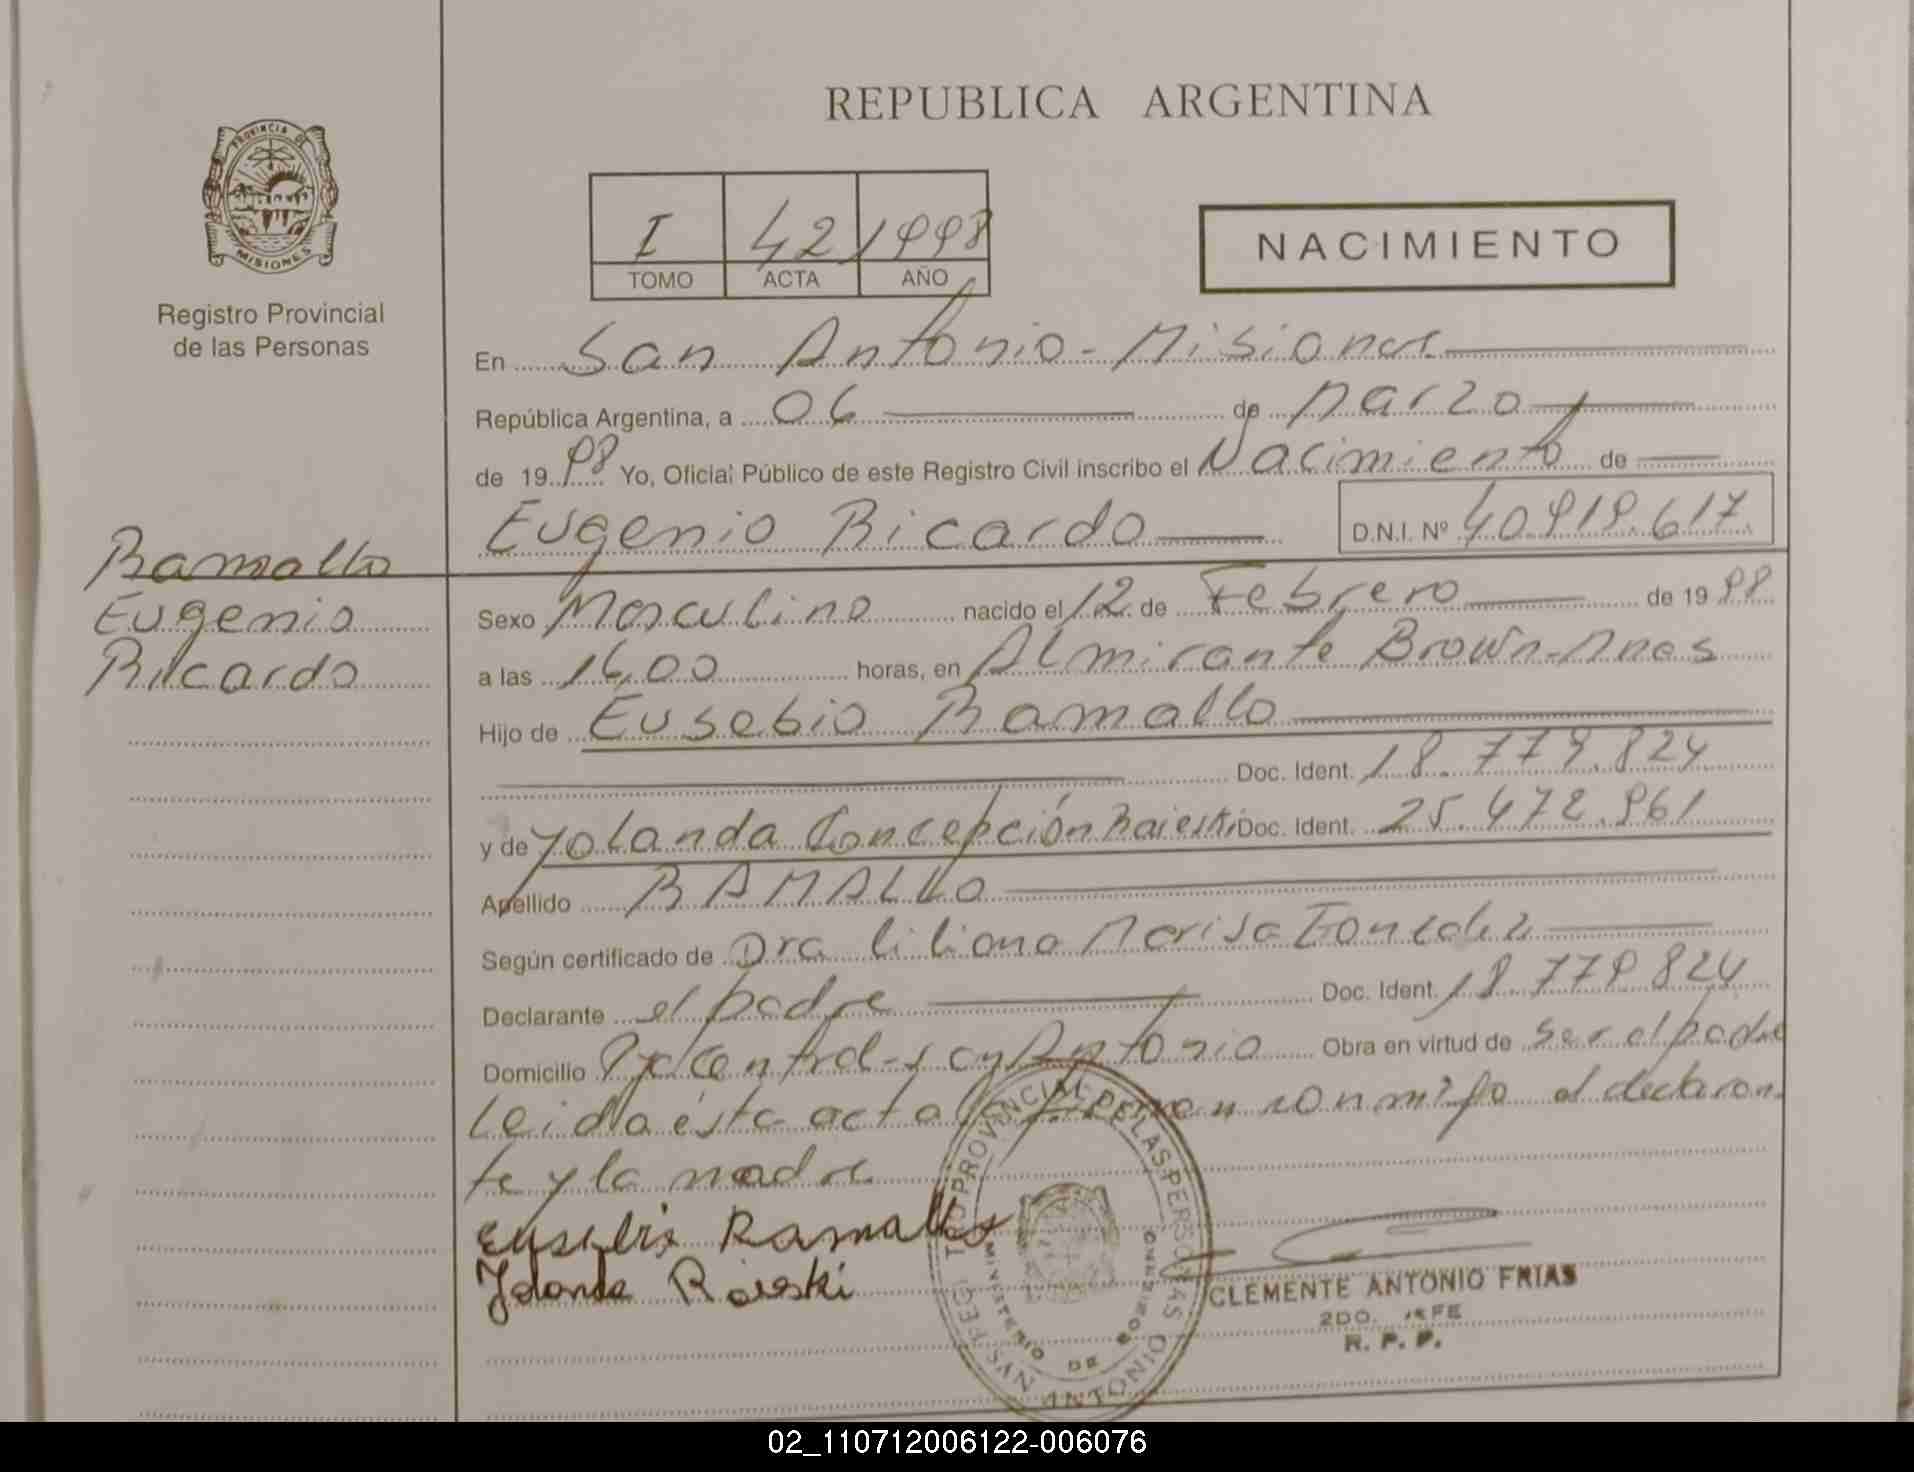 REPUBLICA ARGENTINA
PROVINCIA DE
MISIONES
Registro Provincial
de las Personas
I 42 1998
TOMO ACTA AÑO
NACIMIENTO
En San Antonio - Misiones
República Argentina, a 06 de Marzo
de 1998 Yo, Oficial Público de este Registro Civil inscribo el Nacimiento de
Eugenio Ricardo D.N.I. Nº 40.919.617
Ramallo
Eugenio
Ricardo
Sexo Masculino nacido el 12 de Febrero de 1998
a las 16,00 horas, en Almirante Brown - Mnes
Hijo de Eusebio Ramallo
Doc. Ident. 18.779.824
y de Yolanda Concepción Doc. Ident. 25.472.961
Apellido RAMALLO
Según certificado de Dra Liliana Marisa Gonzalez
Declarante el padre Doc. Ident. 18.779.824
Domicilio central - San Antonio Obra en virtud de ser el padre
Leida ésta acta la firman conmigo el declaran
te y la madre
Eusebio Ramallo
Yolanda
REGISTRO PROVINCIAL DE LAS PERSONAS
MINISTERIO DE GOBIERNO
SAN ANTONIO
CLEMENTE ANTONIO FRIAS
2DO. JEFE
R. P. P.
02_110712006122-006076